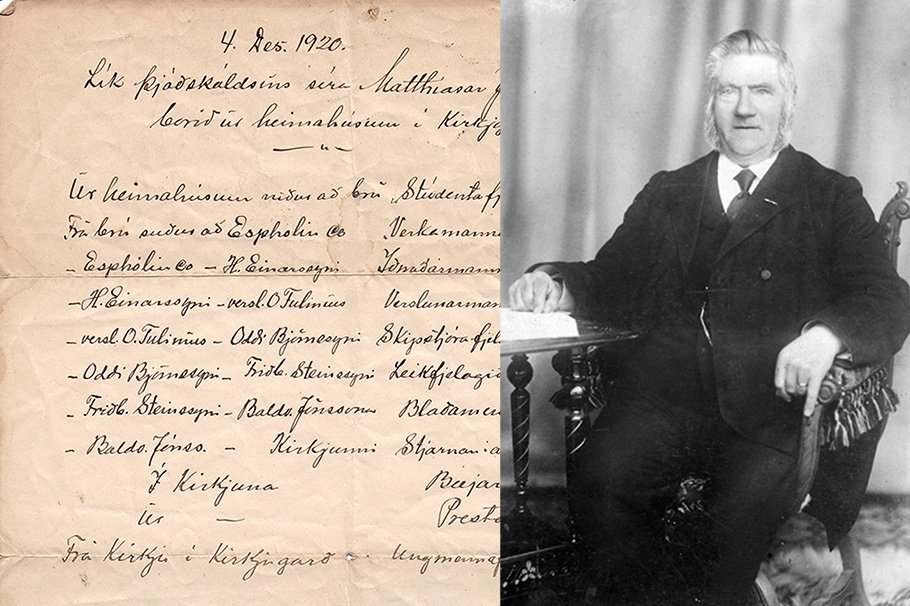 4. Des. 1920.
Lík þjóðskáldsins séra Matthíasar
borið úr heimahúsum í Kirkju
Úr heimahúsum niður að brú „Stúdentafj
Frá brú suður að Espholin Co Verkamann
- Espholin Co - H. Einarssyni Iðnaðarmann
- H. Einarssyni - versl. O. Tulinius Verslunarman
- versl. O. Tulinius - Oddi Björnssyni Skipstjórafjel
- Oddi Björnssyni - Friðb. Steinssyni Leikfjelagi
- Friðb. Steinssyni - Baldv. Jónssonar Blaðamen
- Baldv. Jónss. - Kirkjunni Stjarnan
Í Kirkjuna Bæjar
Úr - Presta
Frá Kirkju í Kirkjugarð Ungmennaf